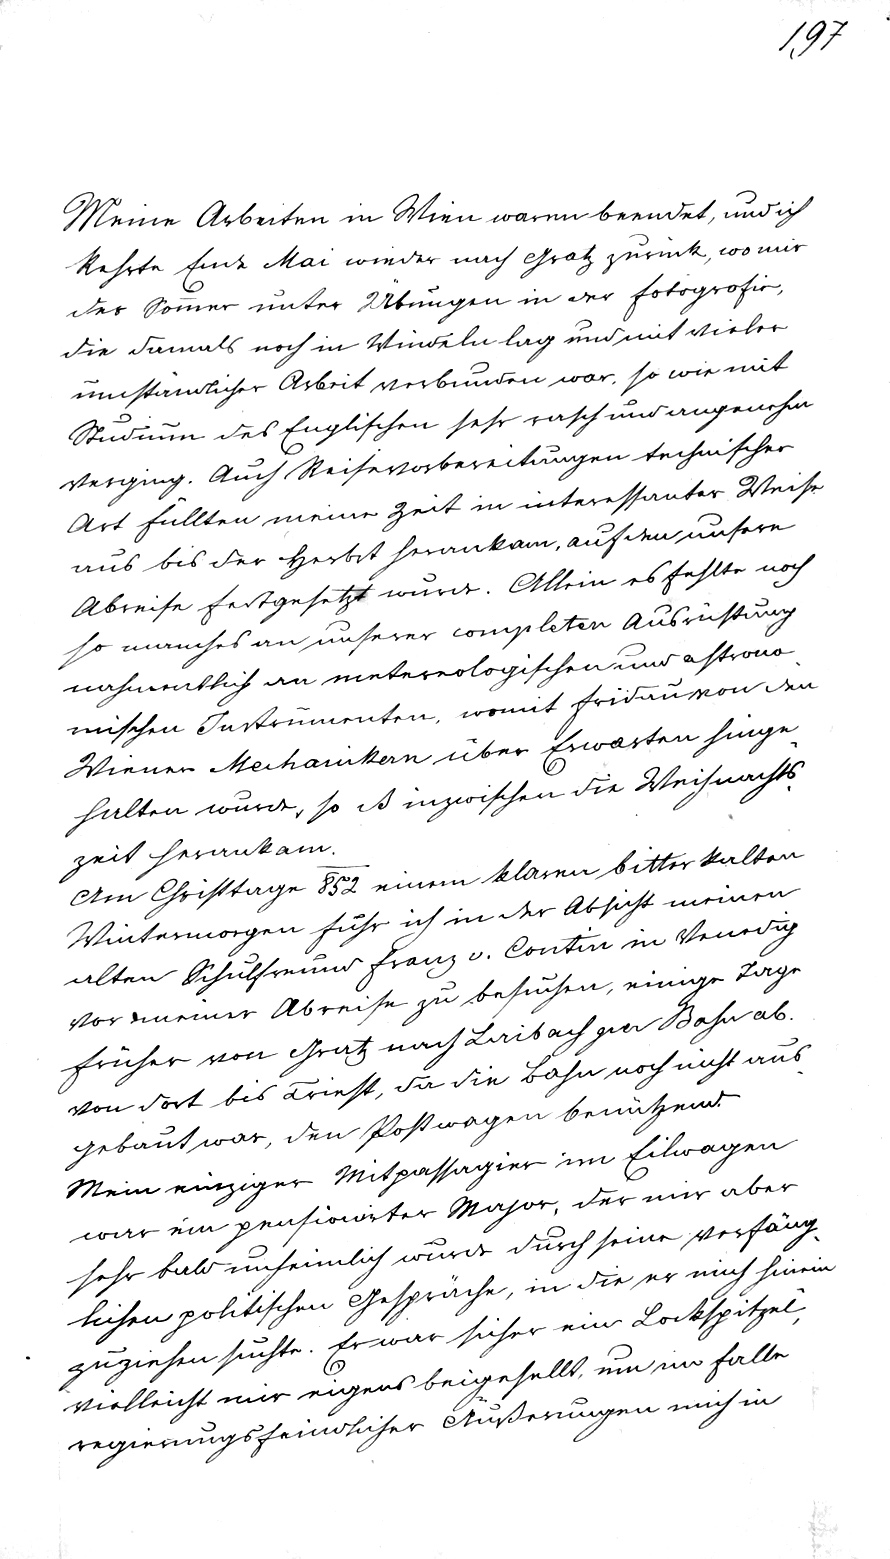 197
Meine Arbeiten in Wien waren beendet, und ich
kehrte Ende Mai wieder nach Gratz zurück, wo mir
der Som̅er unter Übungen in der Fotografie,
die damals noch in Windeln lag und mit vieler
umständlicher Arbeit verbunden war, so wie mit
Studium des Englischen sehr rasch und angenehm
verging. Auch Reisevorbereitungen technischer
Art füllten meine Zeit in interessanter Weise
aus bis der Herbst herankam, auf den unsere
Abreise festgesetzt wurde. Allein es fehlte noch
so manches an unserer completen Ausrüstung
nahmentlich an metereologischen und astrono-
mischen Instrumenten, womit Fridau von den
Wiener Mechanikern über Erwarten hinge-
halten wurde, so ß inzwischen die Weihnachts-
zeit herankam.
Am Christtage 852 einem klaren bitter kalten
Wintermorgen fuhr ich in der Absicht meinen
alten Schulfreund Franz v. Contin in Venedig
vor meiner Abreise zu besuchen, einige Tage
früher von Gratz nach Laibach per Bahn ab.
von dort bis Triest, da die Bahn noch nicht aus-
gebaut war, den Postwagen benützend.
Mein einziger Mitpassagier im Eilwagen
war ein pensionirter Major, der mir aber
sehr bald unheimlich wurde durch seine verfäng-
lichen politischen Gespräche, in die er mich hinein
zuziehen suchte. Er war sicher ein Lockspitzel,
vielleicht mir eigens beigesellt, um im Falle
regierungsfeindlicher Äußerungen mich in